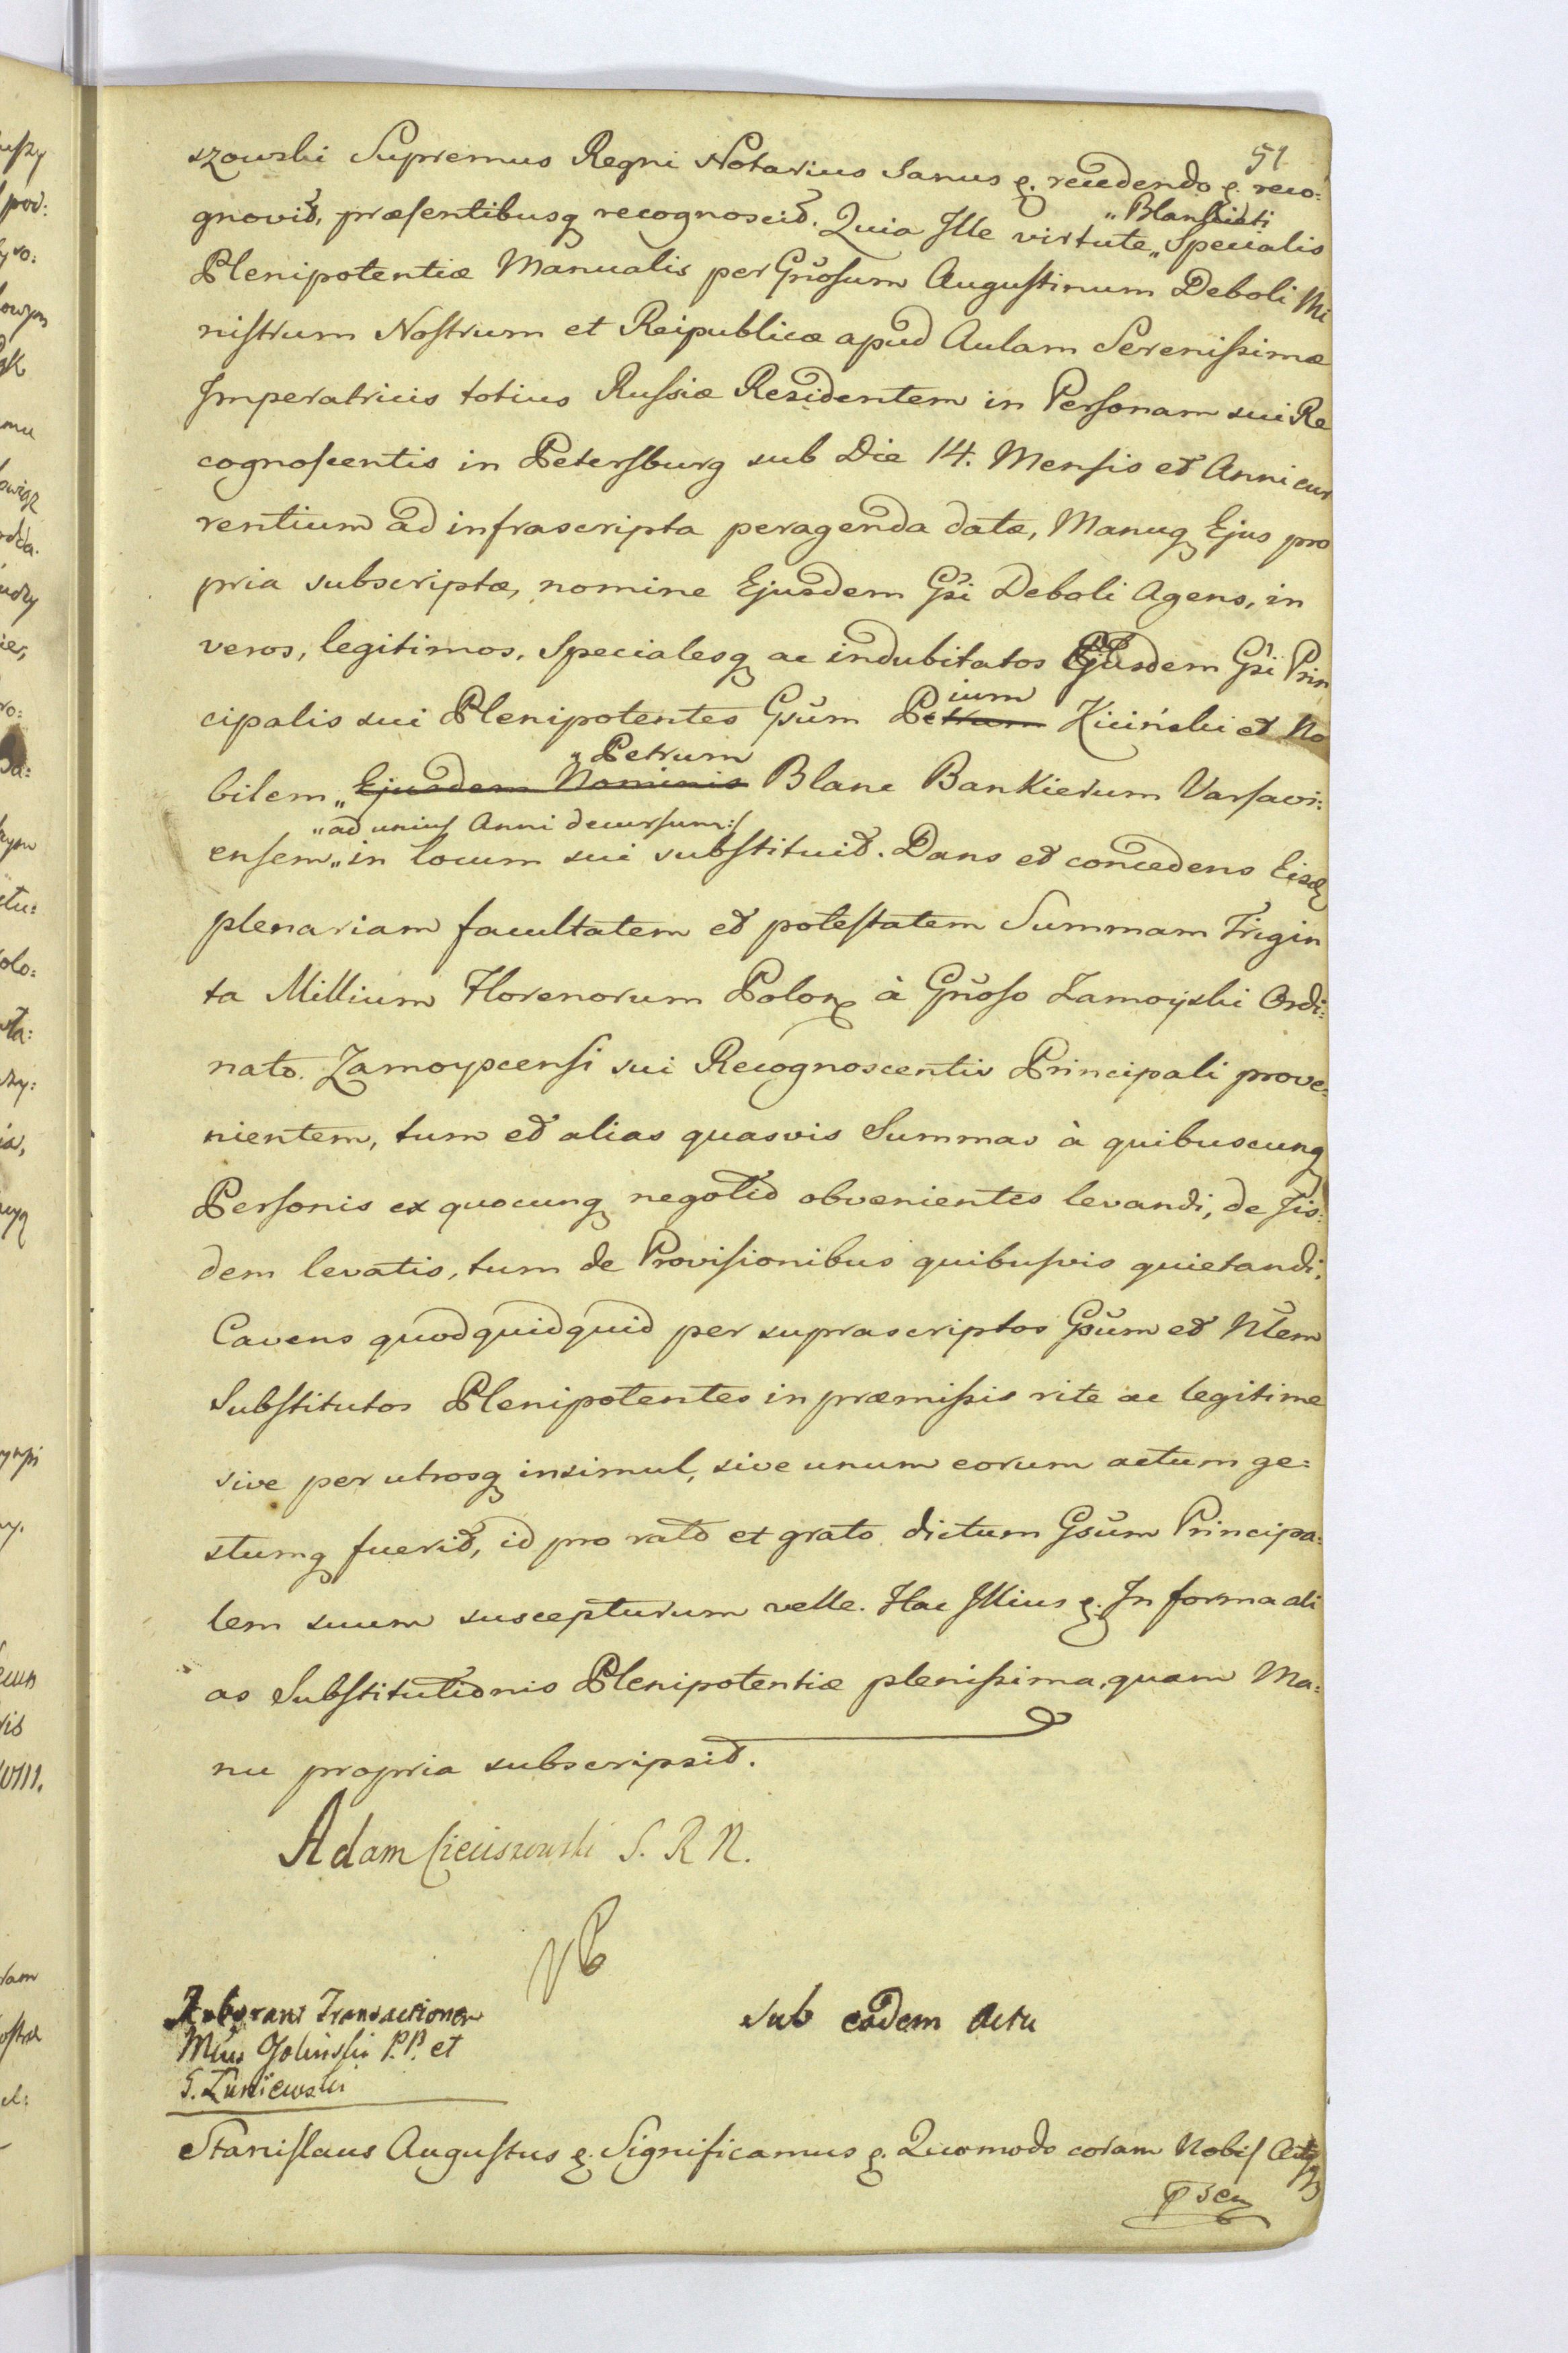 51
szowski Supremus Regni Notarius Sanus &. recedendo &. reco:
gnovit, præsentibusq recognoscit. Quia Ille virtute „ Specialis
„ Blanskieti
Plenipotentiæ Manualis per Gñosum Augustinum Deboli Mi
nistrum Nostrum et Reipublicæ apud Aulam Serenissimæ
Imperatricis totius Russiæ Residentem in Personam sui Re
cognoscentis in Petersburg sub Die 14. Mensis et Anni cur
rentium ad infrascripta peragenda datæ, Manuq Ejus pro
pria subscriptæ, nomine Ejusdem Gsi Deboli Agens, in
veros, legitimos, Specialesq ac indubitatos Ejusdem Gsi Prin
cipalis sui Plenipotentes Gsum Petrum Kiciński et No
ium
„ Petrum
bilem „ Ejusdem Nominis Blanc Bankierum Varsavi:
„ ad unius Anni decursum:/
ensem „ in locum sui substituit. Dans et concedens Eisd
plenariam facultatem et potestatem Summam Trigin
ta Millium Florenorum Polon à Gñoso Zamoyski Ordi:
nato. Zamoyscensi sui Recognoscentis Principali prove:
nientem, tum et alias quasvis Summas à quibuscunq
Personis ex quocunq negotio obvenientes levandi, de Iis:
dem levatis, tum de Provisionibus quibusvis quietandi.
Cavens quod quidquid per suprascriptos Gsum et Nlem
Substitutos Plenipotentes in præmissis rite ac legitime
sive per utrosq insimul, sive unum eorum actum ge:
stumq fuerit, id pro rato et grato dictum Gsum Principa:
lem suum suscepturum velle. Hac Illius &. In forma ali
as Substitutionis Plenipotentiæ plenissima, quam Ma:
nu propria subscripsit.
Adam Cieciszowski S. R N.
Roborant Transactionem
Mcus Golinski P.P. et
S. Zuniewski
sub eadem Actu
Stanislaus Augustus &. Significamus &. Quomodo coram Nobis Actq